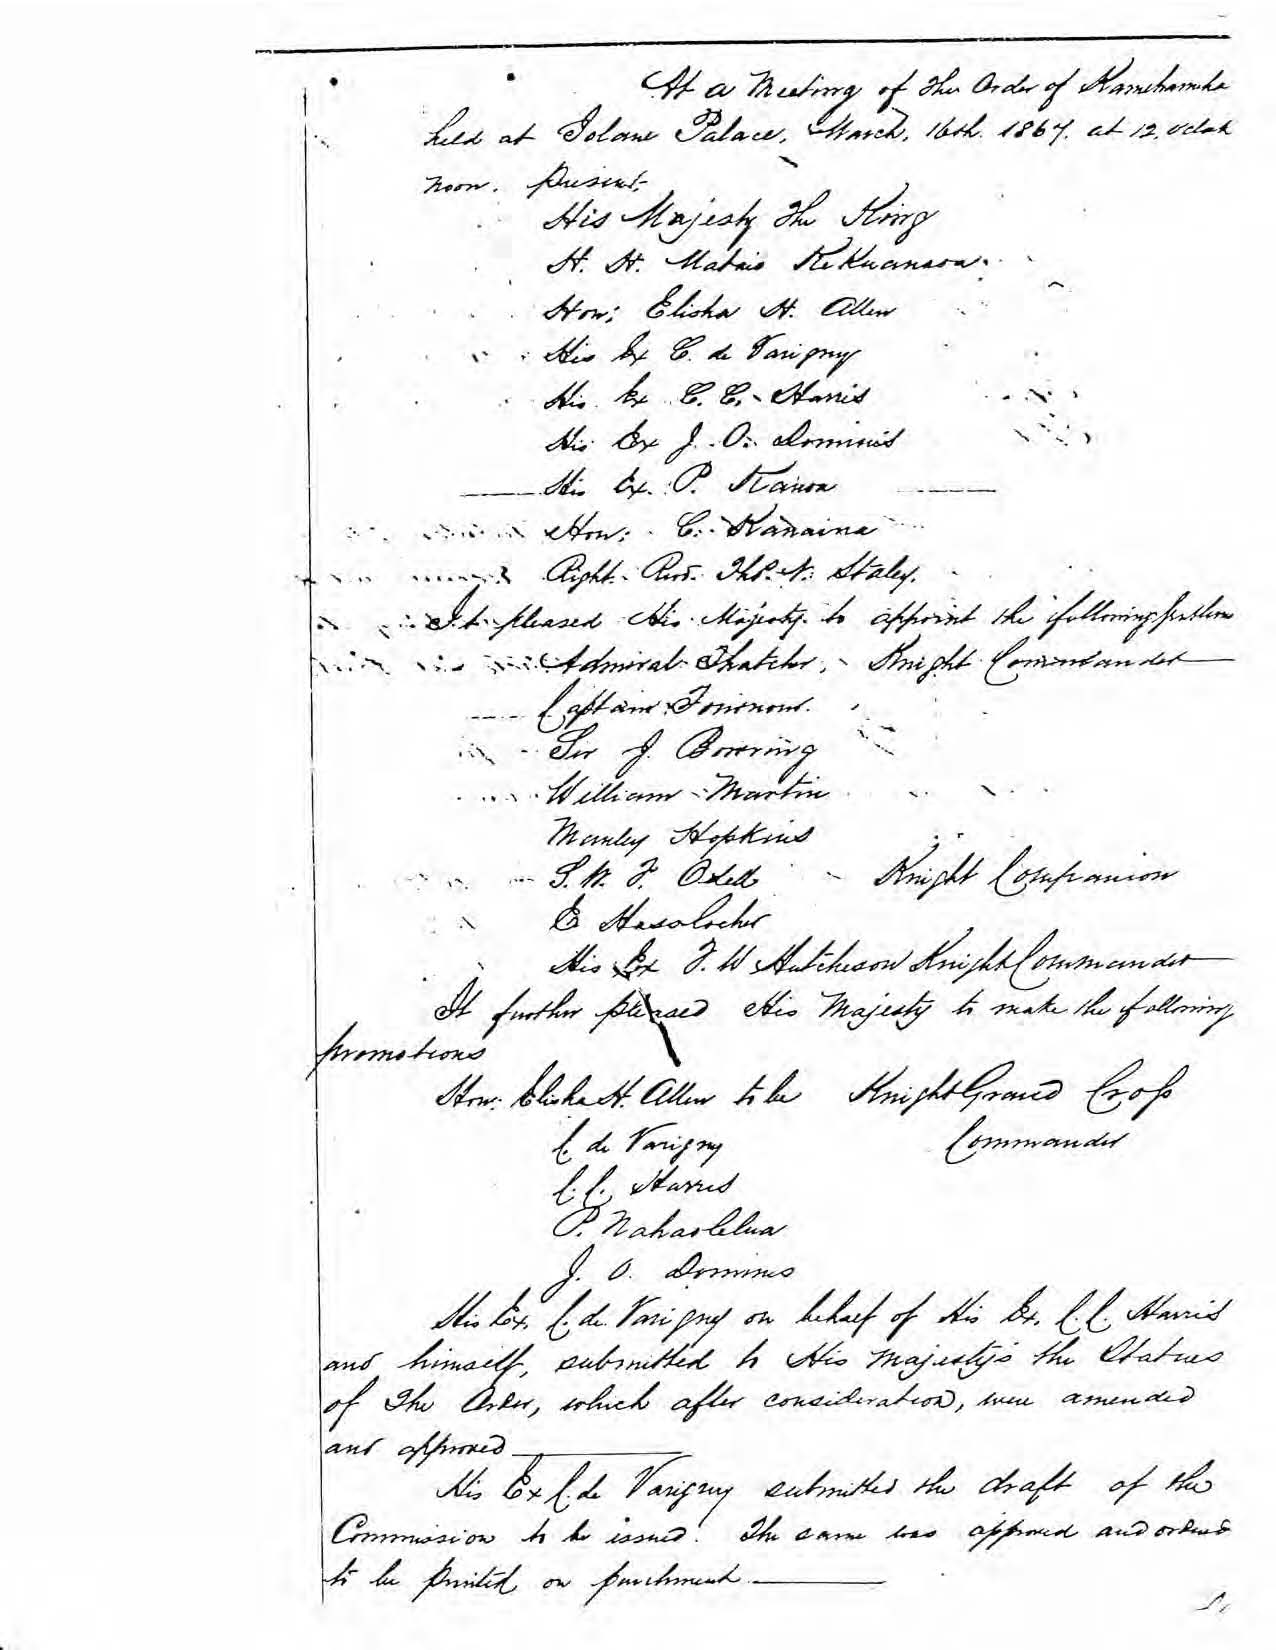 At a Meeting of The Order of Kamehameha
held at Iolani Palace, March, 16th. 1867. at 12. oclock
noon. Present,
His Majesty The King
H. H. Mataio Kekuanaoa.
Hon; Elisha H. Allen
His Ex C. de Varigny
His Ex C. C. Harris
His Ex J. O. Dominis
His Ex. P. Kanoa
Hon; C. Kanaina
Right Revd. Thos. N. Staley.
It pleased His Majesty to appoint the following
Admiral Thatcher, Knight Commander
Captain
Sir J. Bowring
William Martin
Manley Hopkins
S. W. F. Odell Knight Companion
E Hasslocher
His Ex F. W Hutcheson Knight Commander
It further pleased His Majesty to make the following
promotions
Hon: Elisha H. Allen to be Knight Grand Cross
C. de Varigny Commander
C. C. Harris
P. Nahaolelua
J. O. Dominis
His Ex, C. de Varigny on behalf of His Ex. C. C. Harris
and himself, submitted to His Majesty's the Statues
of The Order, which after consideration, were amended
and approved
His Ex C. de Varigny submitted the draft of the
Commission to be issued. The same was approved and ordered
to be printed on parchment.